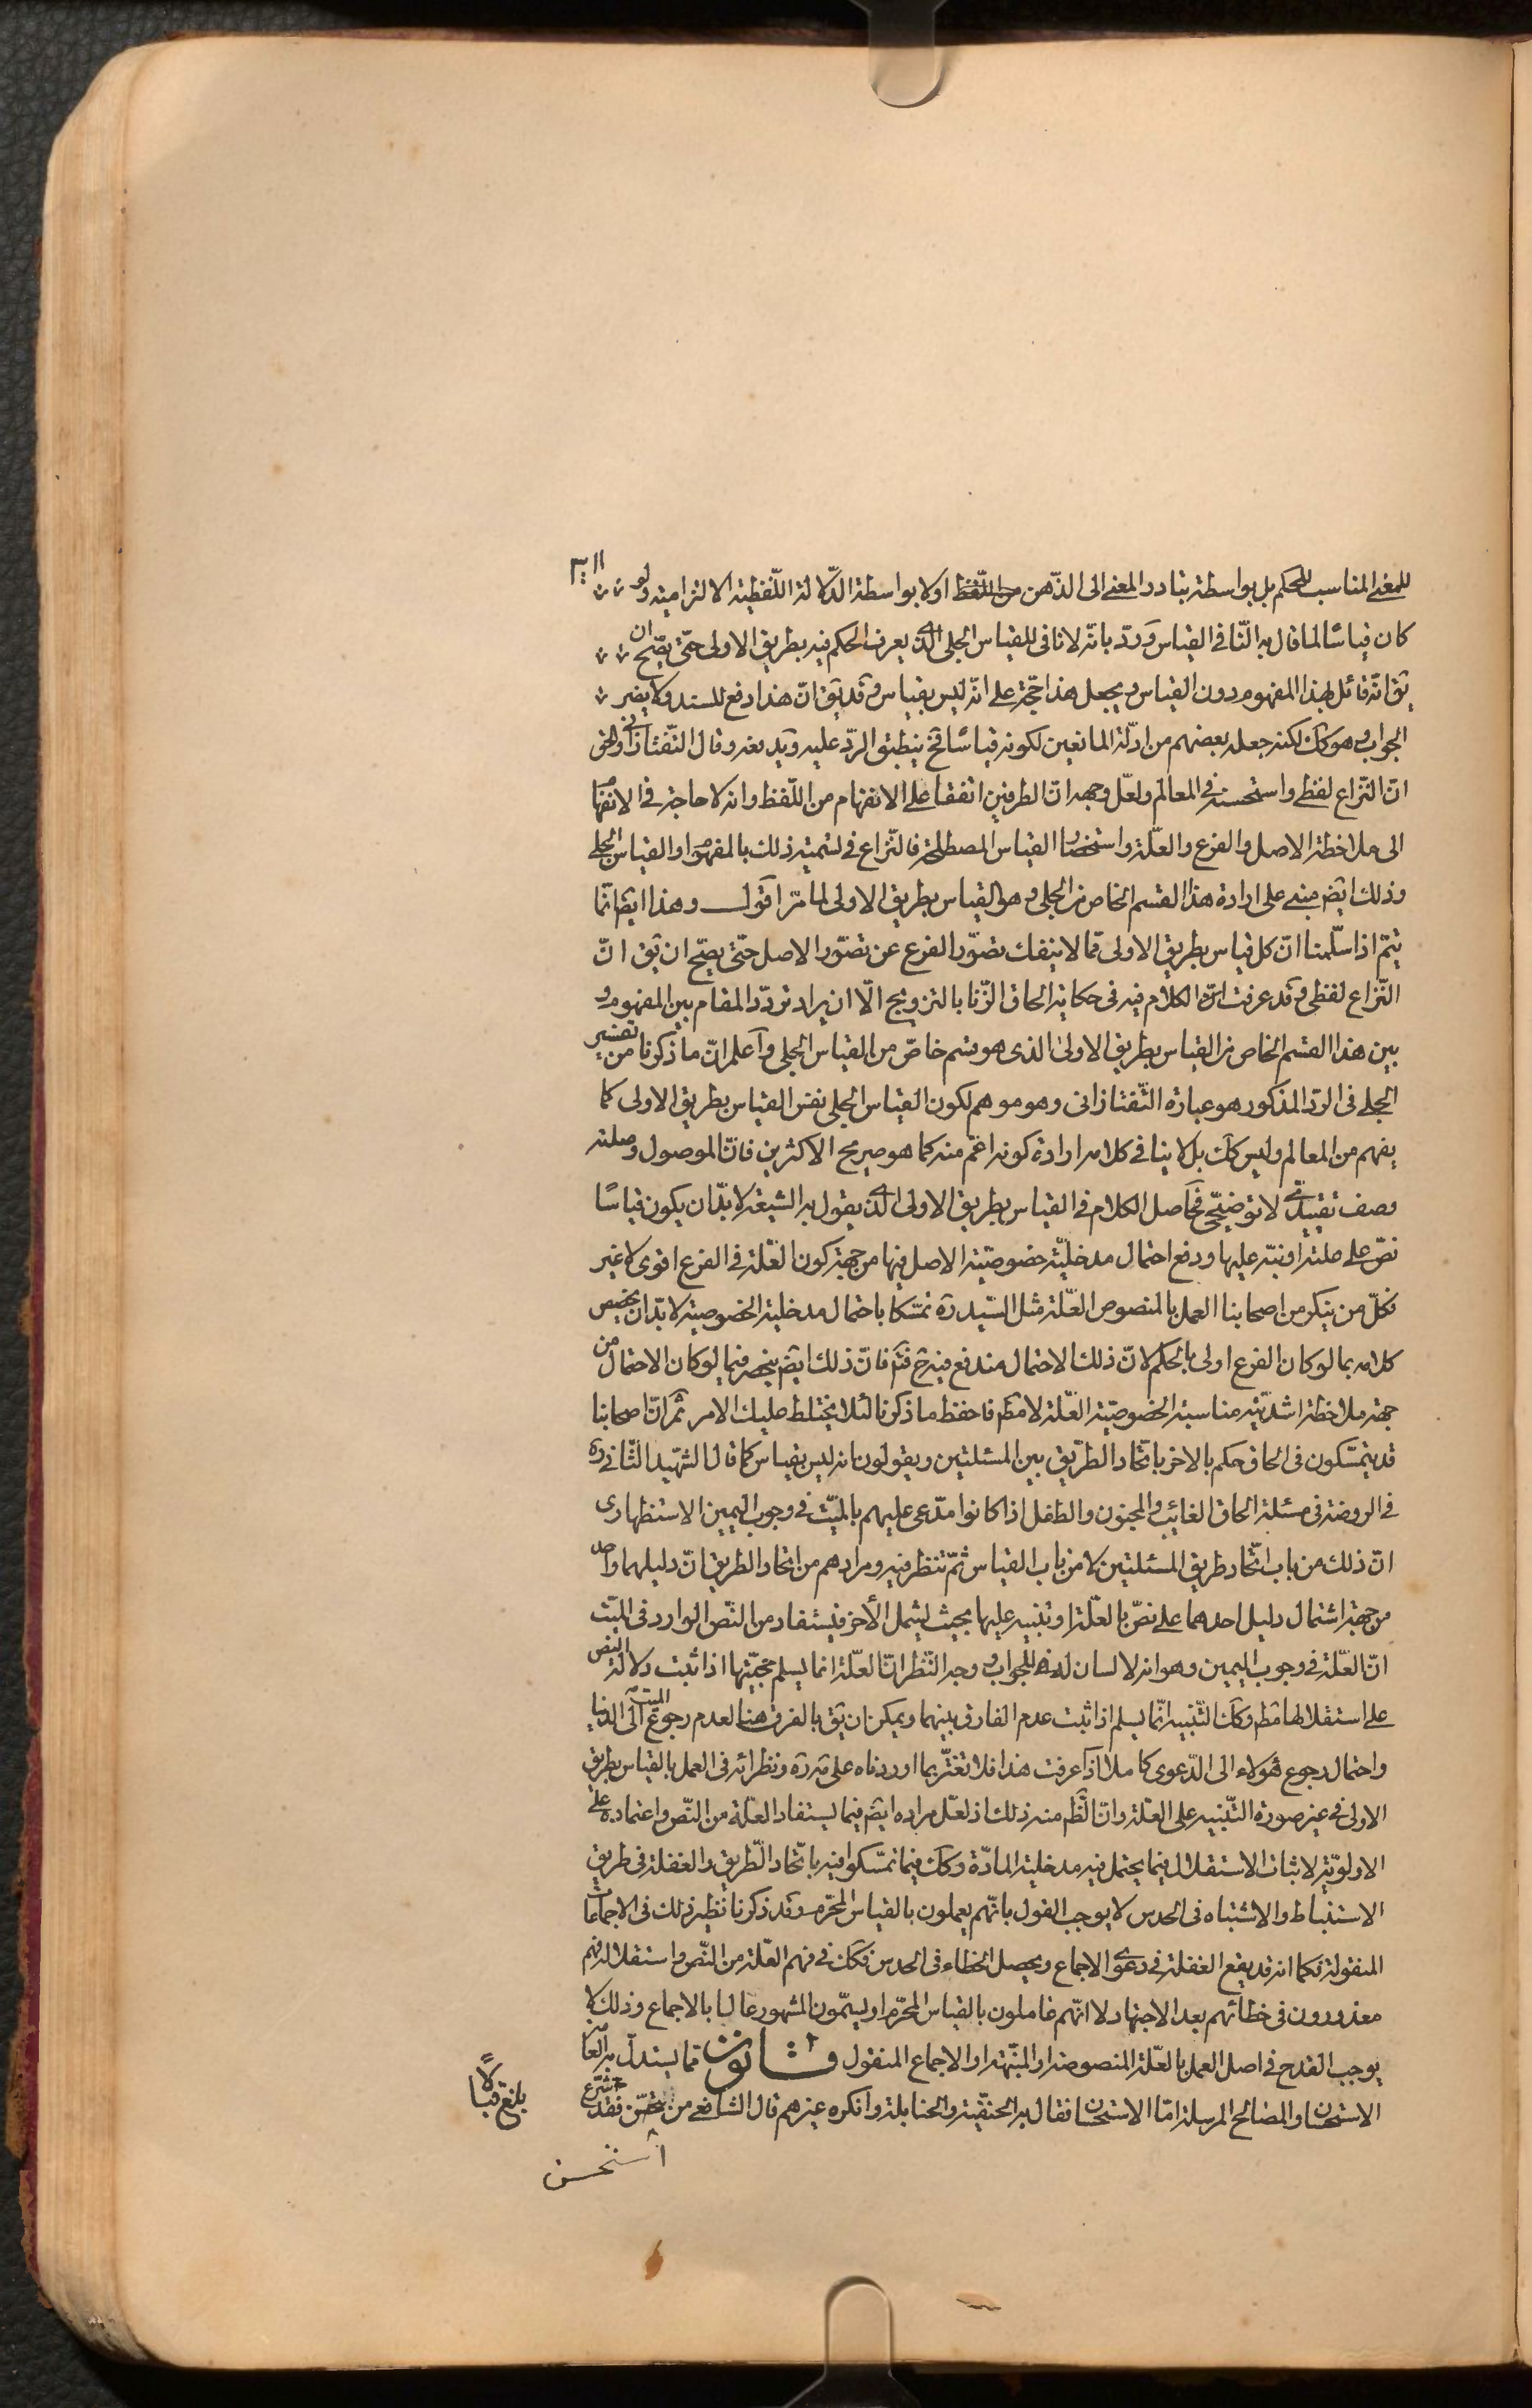 للمعنى المناسب للحكم بل بواسطة تبادر المعنى الى الذّهن من اللّفظ اولا بواسطة الدّلالة اللّفظية الالتزامية ولو
كان قياسًا لما قال به النّافي القياس وردّ بانّه لا نافى للقياس الجلى الذى يعرف الحكم فيه بطريق الاولى حتّى يصّح ان
يق انّه قائل بهذا المفهوم دون القياس ويجعل هذا حجّة على انّه ليس بقياس وقد يق انّ هذا دفع للسند ولا يضر
الجواب وهو كك لكنه جعله بعضهم من ادلّة المانعين لكونه قياسًا فح ينطبق الردّ عليه ويدفعه وقال التّفتازانى والحق
انّ النّزاع لفظى واستحسنه في المعالم ولعّل وجهه انّ الطرفين اتفقا على الانفهام من اللّفظ وانه لا حاجة في الانفهام
الى ملاحظة الاصل والفرع والعلّة واستحضار القياس المصطلح فالنّزاع في تسمية ذلك بالمفهوم او القياس الجلى
وذلك ايض مبنى على ارادة هذا القسم الخاص من الجلى وهو القياس بطريق الاولى لما مرّ اقول وهذا ايضا انّما
يتمّ اذا سلّمنا انّ كل قياس بطريق الاولى ممّا لا ينفك تصوّر الفرع عن تصوّر الاصل حتّى يصّح ان يق انّ
النّزاع لفظى وقد عرفت انّه الكلام فيه في حكاية الحاق الزّنا بالتزويج الّا ان يراد تردّد المقام بين المفهوم و
بين هذا القسم الخاص من القياس بطريق الاولى الذى هو قسم خاصّ من القياس الجلى واعلم انّ ما ذكرنا من تفسير
الجلى في الردّ المذكور هو عبارة التّفتازانى وهو موهم لكون القياس الجلى نفس القياس بطريق الاولى كما
يفهم من المعالم وليس كك بل لا ينافى كلامه ارادة كونه اعّم منه كما هو صريح الاكثرين فانّ الموصول وصلته
وصف تقييدىّ لا توضيحّى فحاصل الكلام في القياس بطريق الاولى الذى يقول به الشيعة لا بدّ ان يكون قياسًا
نصّ على علته او نبّه عليها ودفع احتمال مدخليّة خصوصيّة الاصل فيها من جهة كون العّلة في الفرع اقوى لا غير
فكلّ من ينكر من اصحابنا العمل بالمنصوص العّلة مثل السّيد ره تمسّكا باحتمال مدخلية الخصوصية لا بدّ ان يخصص
كلامه بما لو كان الفرع اولى بالحكم لانّ ذلك الاحتمال مندفع فيه ح فتم فانّ ذلك ايض ينحصر فيما لو كان الاحتمال من
جهة ملاحظة اشدّية مناسبة الخصوصيّة العّلة لا مطم فاحفظ ما ذكرنا لئلا يختلط عليك الامر ثم انّ اصحابنا
قد يتمسّكون في الحاق حكم بالاخر باتّحاد الطّريق بين المسئلتين ويقولون انه ليس بقياس كما قال الشهّيد الثّانى ره
في الروضة في مسئلة الحاق الغائب والمجنون والطفل اذا كانوا مدّعى عليهم بالميّت في وجوب اليمين الاستظهارى
انّ ذلك من باب اتّحاد طريق المسئلتين لا من باب القياس ثمّ تنظر فيه ومرادهم من اتحاد الطريق انّ دليلهما واحد
من جهة اشتمال دليل احدهما على نصّ بالعلّة او تنبيه عليها بحيث يشمل الأخر فيستفاد من النّص الوارد في الميّت
انّ العلّة في وجوب اليمين وهو انه لا لسان له للجواب ووجه النّظر انّ العلّة انما يسلم حجّيّتها اذا ثبت دلالة النص
على استقلالها مطم وكك التّنبيه انّما يسلم اذا ثبت عدم الفارق بينهما ويمكن ان يق بالفرق هنا لعدم رجوع الميت الى الدنيا
واحتمال رجوع هؤلاء الى الدّعوى كاملا اذا عرفت هذا فلا تغترّ بما اوردناه على ره ونظرائه في العمل بالقياس بطريق
الاولى في غير صورة التّنبيه على العلّة وانّ الظّم منه ذلك اذ لعّل مراده ايض فيما يستفاد العلّة من النّص واعتماده على
الاولويّة لاثبات الاستقلال فيما يحتمل فيه مدخلية المادّة وكك فيما تمسّكوا فيه باتّحاد الطّريق والغفلة في طريق
الاستنباط والاشتباه في الحدس لا يوجب القول بانّهم يعملون بالقياس المحرّم وقد ذكرنا نظير ذلك في الاجماعات
المنقولة فكما انه قد يقع الغفلة في دعوى الاجماع ويحصل الخطاء في الحدس فكك في فهم العّلة من النّص واستقلاله فهم
معذورون في خطائهم بعد الاجتهاد لا انّهم عاملون بالقياس المحرّم او يسمّون المشهور غالبا بالاجماع وذلك لا
يوجب القدح في اصل العمل بالعّلة المنصوصة او المنبّهة او الاجماع المنقول قانون ممّا يستدلّ به العامة
الاستحسان والمصالح المرسلة امّا الاستحسان فقال به الحنفّية والحنابلة وانكره غيرهم قال الشافعى من فقد شرّع
استحسن
بلغ قبالًا